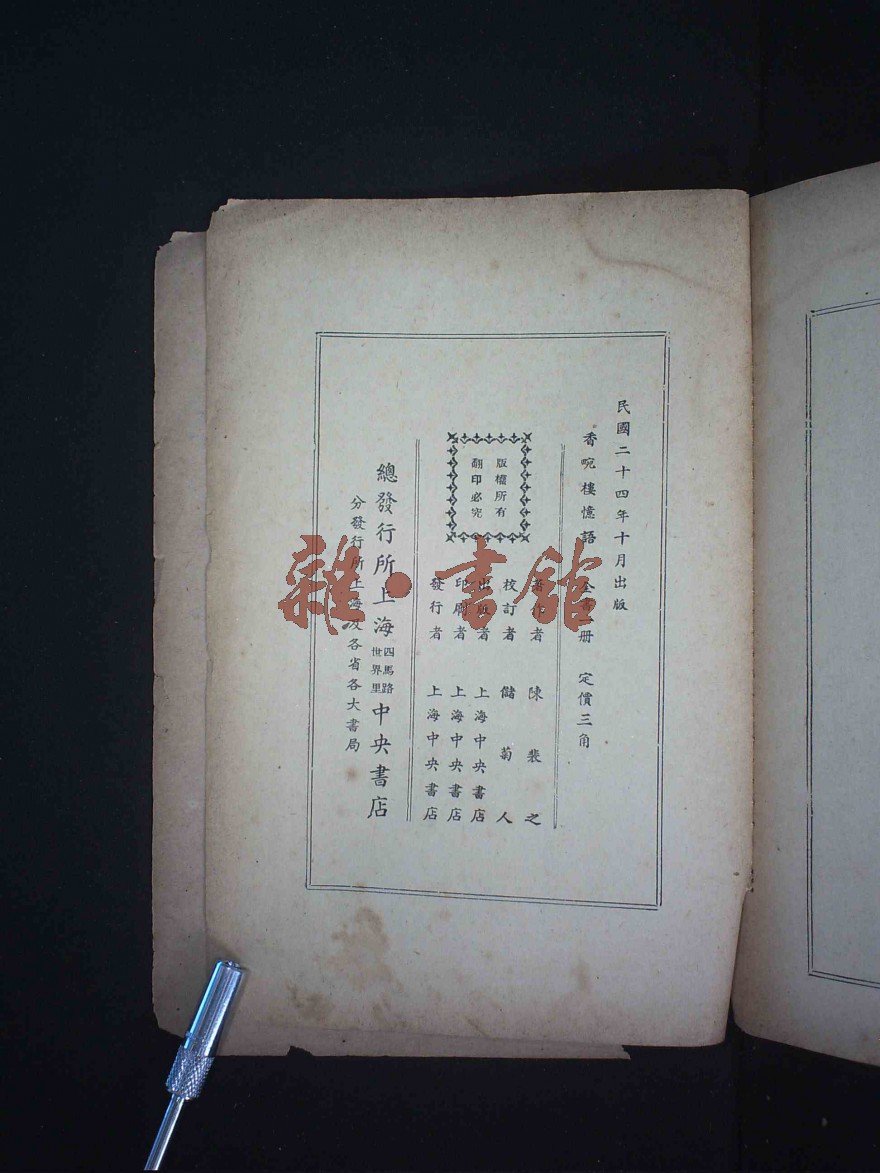 民國二十四年十月出版
香畹樓憶語 全書一册 定價三角
版權所有
翻印必究
著作者 陳裴之
校訂者 儲菊人
出版者 上海中央書店
印刷者 上海中央書店
發行者 上海中央書店
總發行所上海四馬路世界里中央書店
分發行所上海及各省各大書局
雜·書館